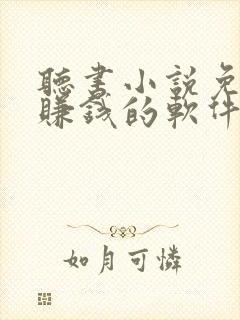 聽書小說免
賺錢的軟件
如月可憐